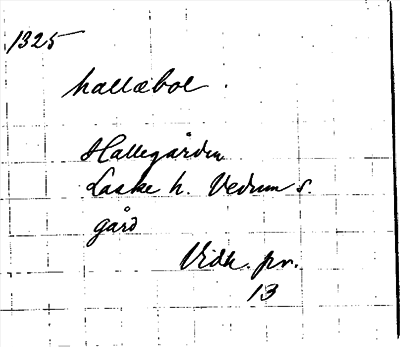 1325
hallæbol
Hallegården
Laske h. Vedum s.
gård
Vidh. pr.
13